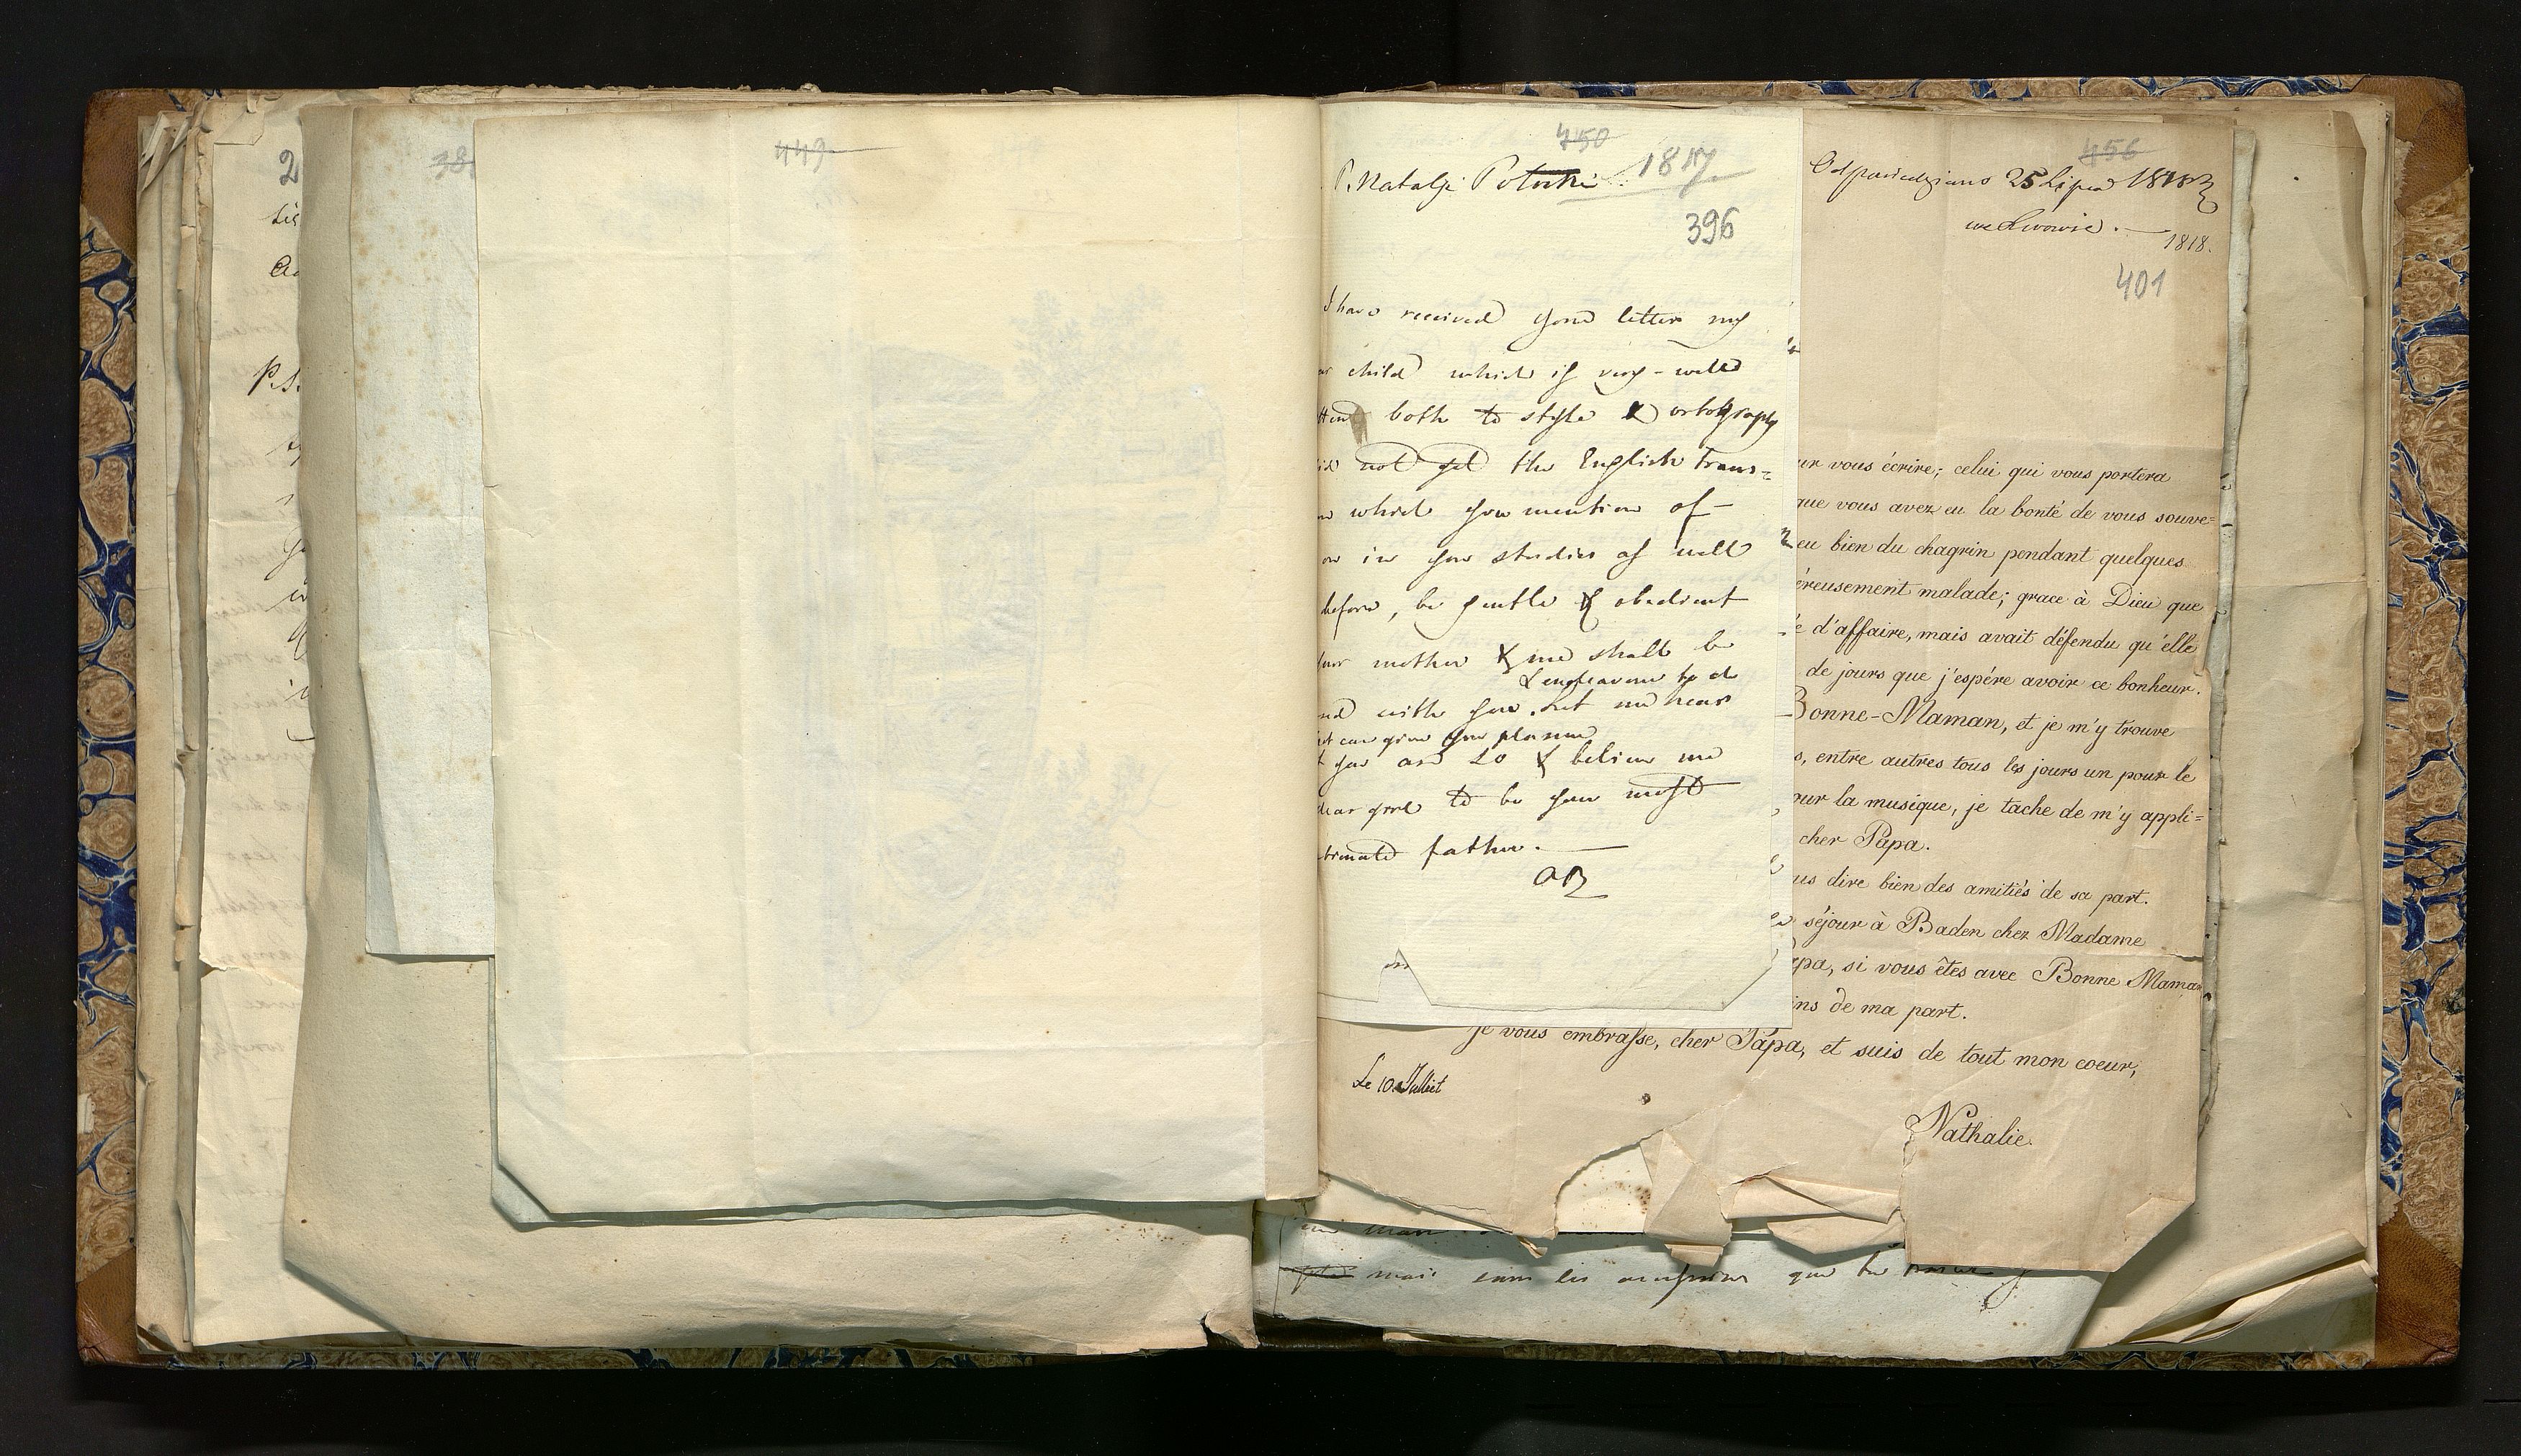 2
P.S.
38
449
450
P. Natalji Potocki 1817
396
I have received your letter my
child which is very-well
both to style & ortography
not get the English Trans=
which you mention of-
in your studies as well
before, be gentle & obedient
mother & me shall be
& endeavour to do
with you. Let me hear
can give you pleasure
you are so & believe me
dear girl to be your most
father.
456
Odpowiedziano 25 Lipca 1818
we Lwowie.
1818.
401
vous écrire; celui qui vous portera
que vous avez eu la bonté de vous souve=
eu bien du chagrin pendant quelques
malade; grace à Dieu que
d'affaire, mais avait défendu qu'elle
de jours que j'espére avoir ce bonheur.
Bonne-Maman, et je m'y trouve
entre autres tous les jours un pour le
la musique, je tache de m'y appli=
cher Papa.
dire bien des amitiés de sa part.
séjour à Baden chez Madame
si vous êtes avec Bonne Maman
de ma part.
je vous embrasse, cher Papa, et suis de tout mon coeur,
Le 10. Juillet
Nathalie.
mais